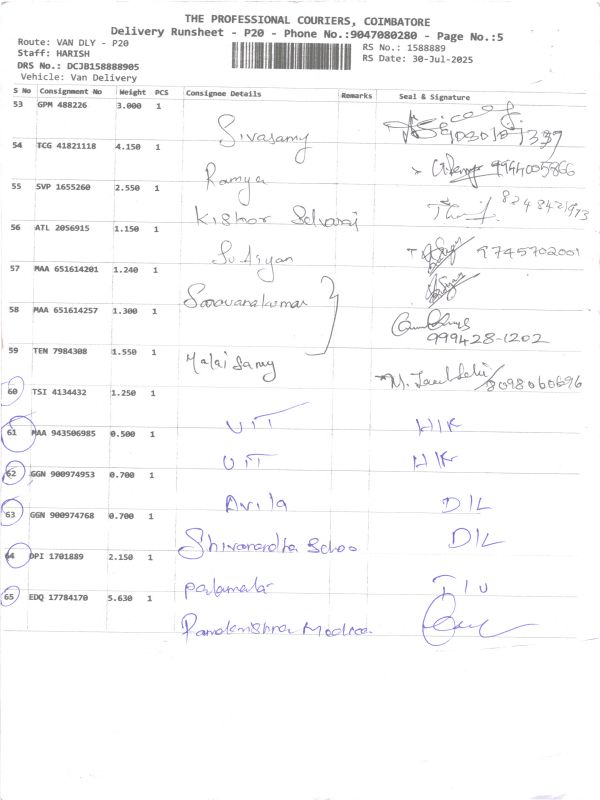 THE PROFESSIONAL COURIERS, COIMBATORE
Delivery Runsheet - P20 - Phone No.:9047080280 - Page No.:5
Route: VAN DLY - P20
Staff: HARISH
DRS No.: DCJB158888905
Vehicle: Van Delivery
RS No.: 1588889
RS Date: 30-Jul-2025
S No Consignment No Weight PCS Consignee Details Remarks Seal & Signature
53 GPM 488226 3.000 1
Sivasamy
54 TCG 41821118 4.150 1
Ramya 9944005866
55 SVP 1655260 2.550 1
Kishor Selvaraj 8248421973
56 ATL 2056915 1.150 1
9745702001
57 MAA 651614201 1.240 1
Saravanakumar
58 MAA 651614257 1.300 1
999428-1202
59 TEN 7984308 1.550 1
Malaisamy 8098060696
60 TSI 4134432 1.250 1
UIT H/K
61 MAA 943506985 0.500 1
UIT H/K
62 GGN 900974953 0.700 1
Avila D/L
63 GGN 900974768 0.700 1
D/L
64 DPI 1701889 2.150 1
65 EDQ 17784170 5.630 1